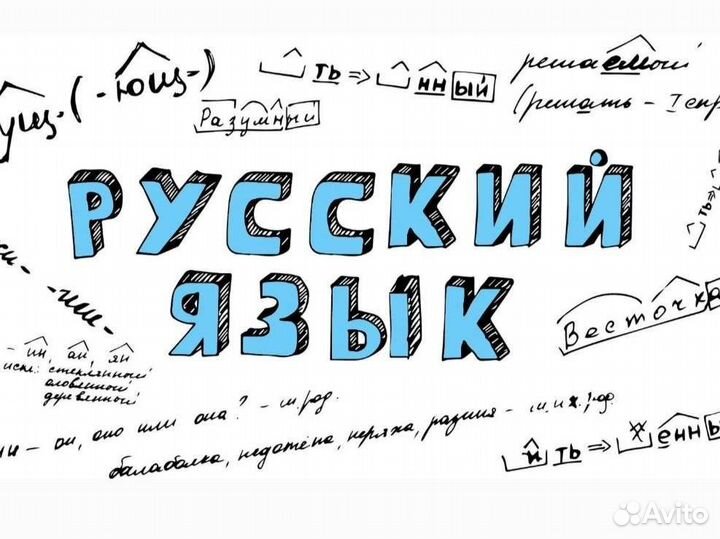 ущ-(-ющ-)
ть⇒ нный
решаемый
(решать - I спр
Разумный
РУССКИЙ
ть⇒
ЯЗЫК
Весточка
- ин, ан, ян
искл.: стеклянный
оловянный
деревянный
- он, оно или она? - м.род.
балаболка, недотёпа, неряха, разиня - м. и ж. р.
ить⇒ енны
Avito